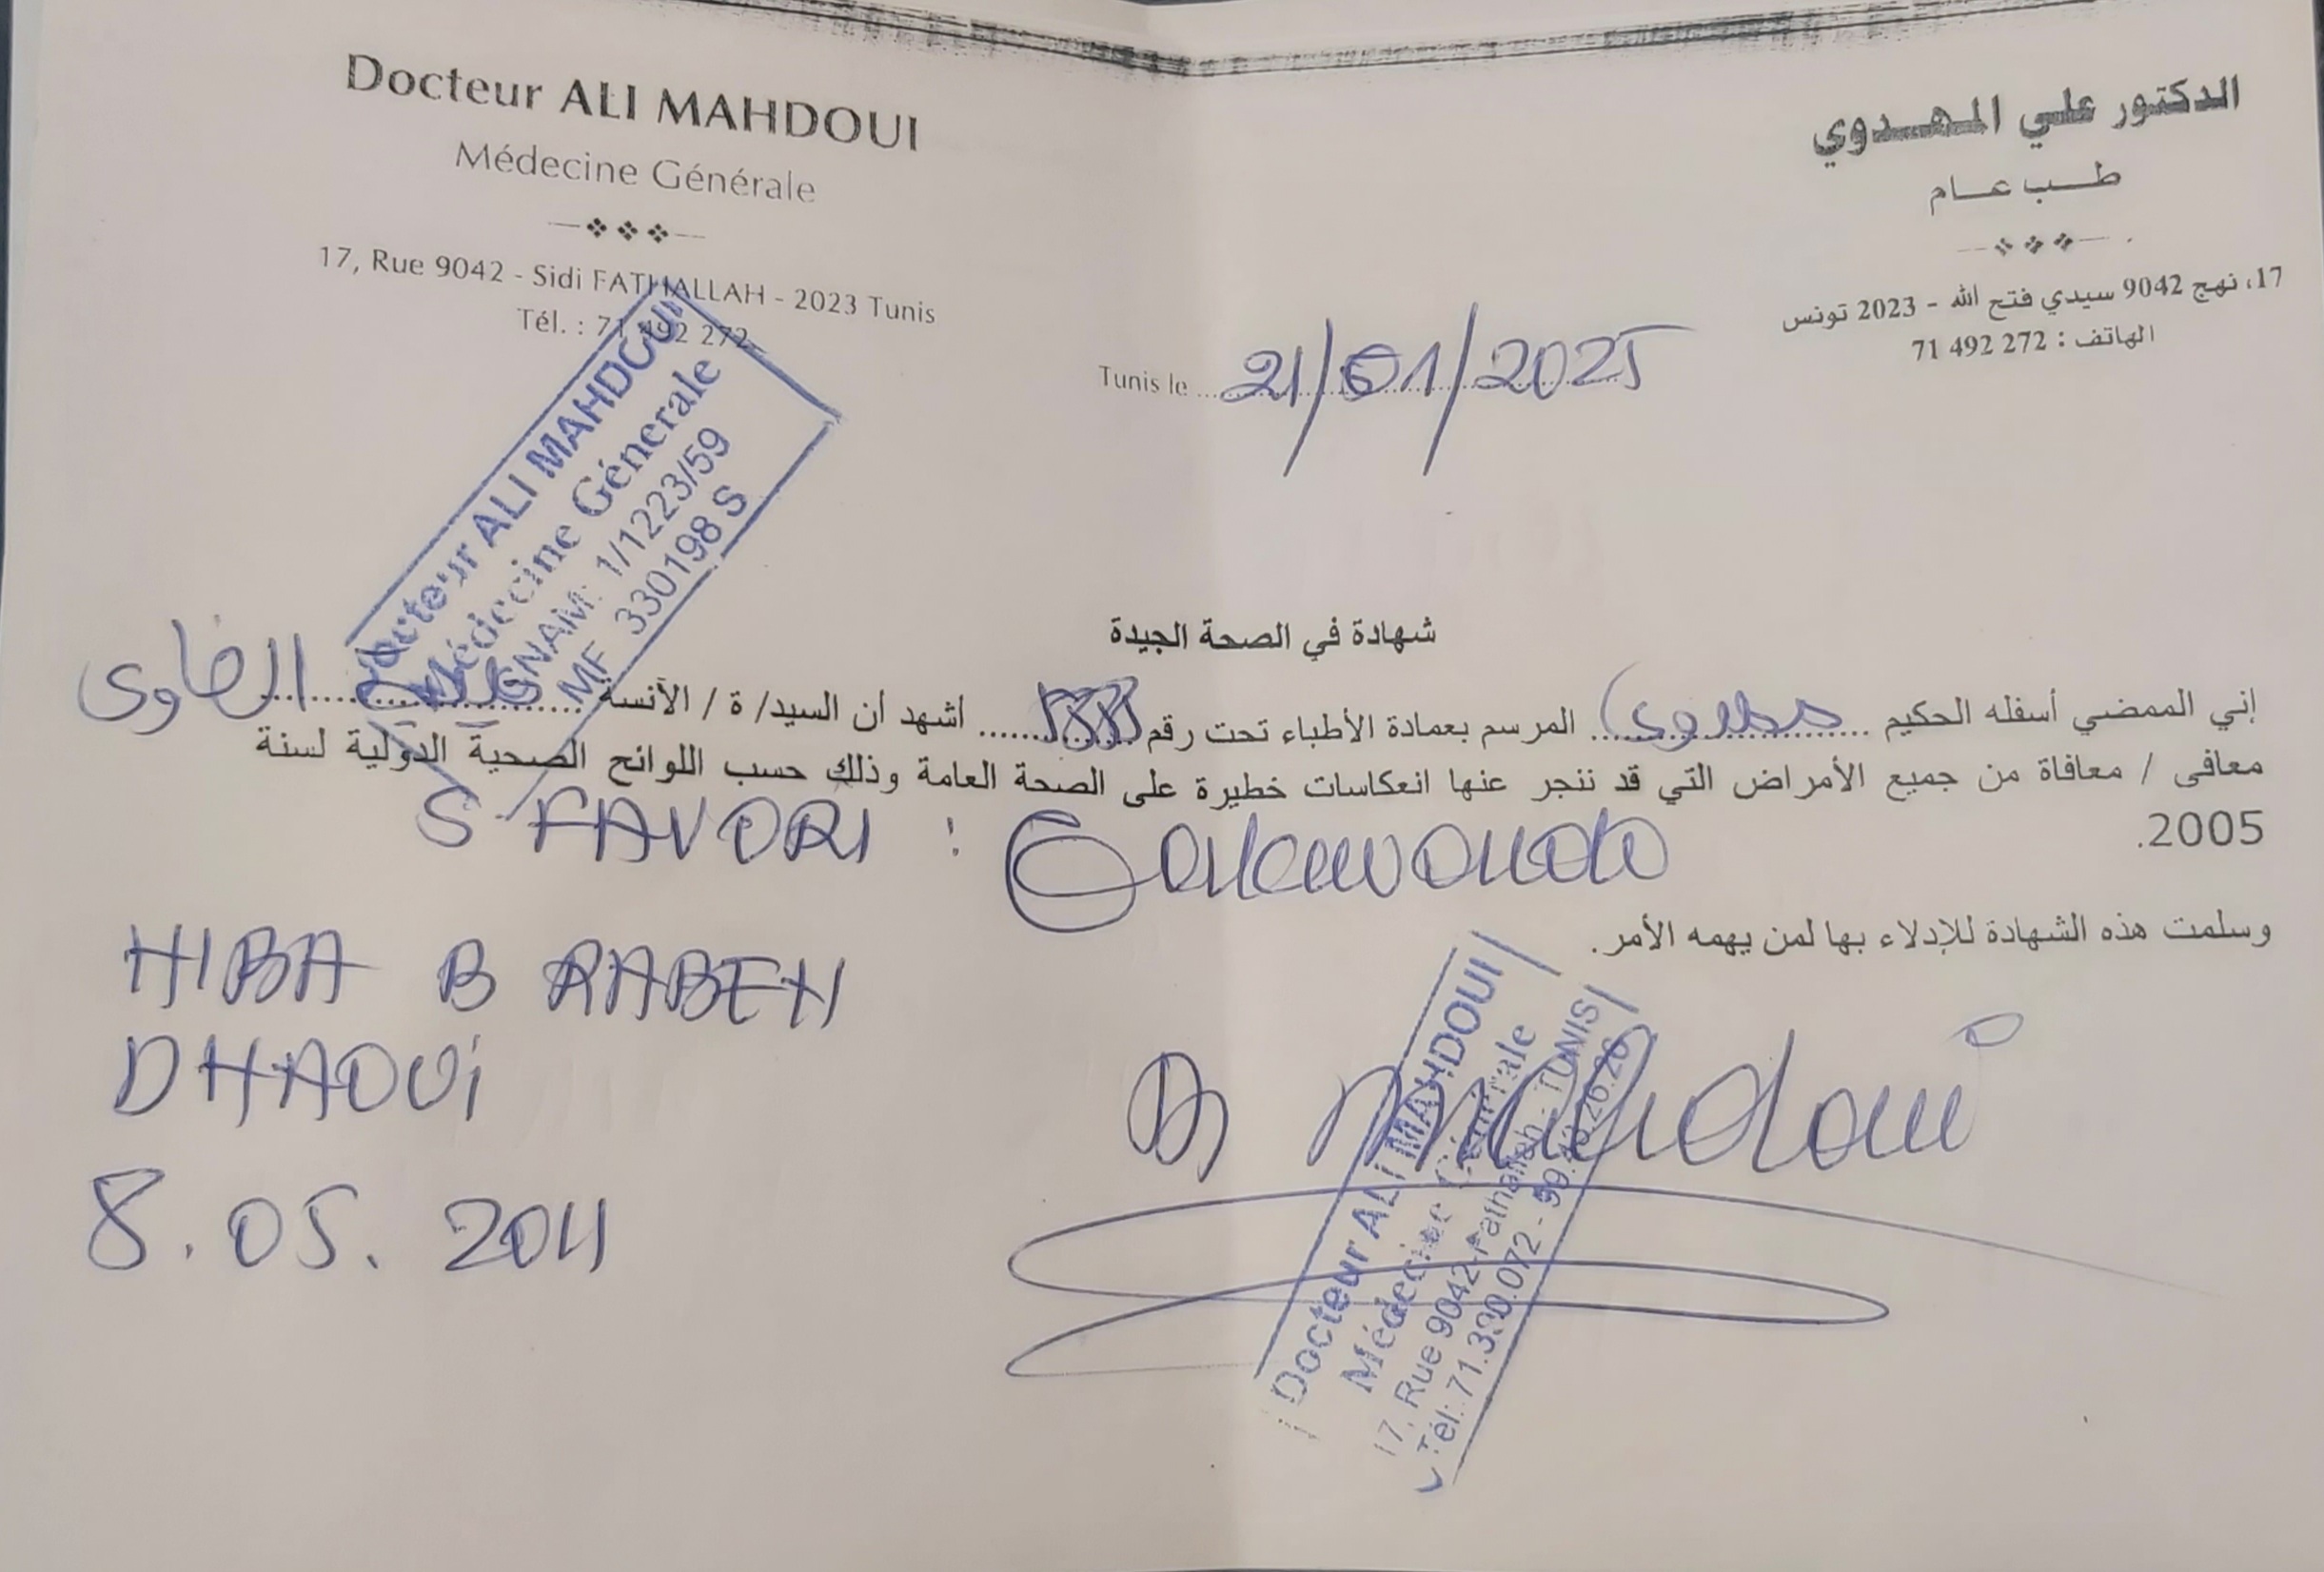 Docteur ALI MAHDOUI
Médecine Générale
17, Rue 9042 - Sidi FATHALLAH - 2023 Tunis
Tél. : 71 492 272
الدكتور علي المهدوي
طب عام
17، نهج 9042 سيدي فتح الله - 2023 تونس
الهاتف : 272 492 71
Tunis le 21/01/2025
Docteur ALI MAHDOUI
Médecine Générale
CNAM: 1/1223/59
MF 330198 S
شهادة في الصحة الجيدة
إني الممضي أسفله الحكيم مهدوي المرسم بعمادة الأطباء تحت رقم أشهد أن السيد/ ة / الآنسة الضاوي
معافى / معافاة من جميع الأمراض التي قد ننجر عنها انعكاسات خطيرة على الصحة العامة وذلك حسب اللوائح الصحية الدولية لسنة
2005.
S FAVORI :
وسلمت هذه الشهادة للإدلاء بها لمن يهمه الأمر.
HIBA B RABEH
DHAOUi
8.05.2011
Dr Mahdoui
Docteur ALI MAHDOUI
Médecine Générale
17, Rue 9042-Fathallah - TUNIS
Tél: 71.390.072 -